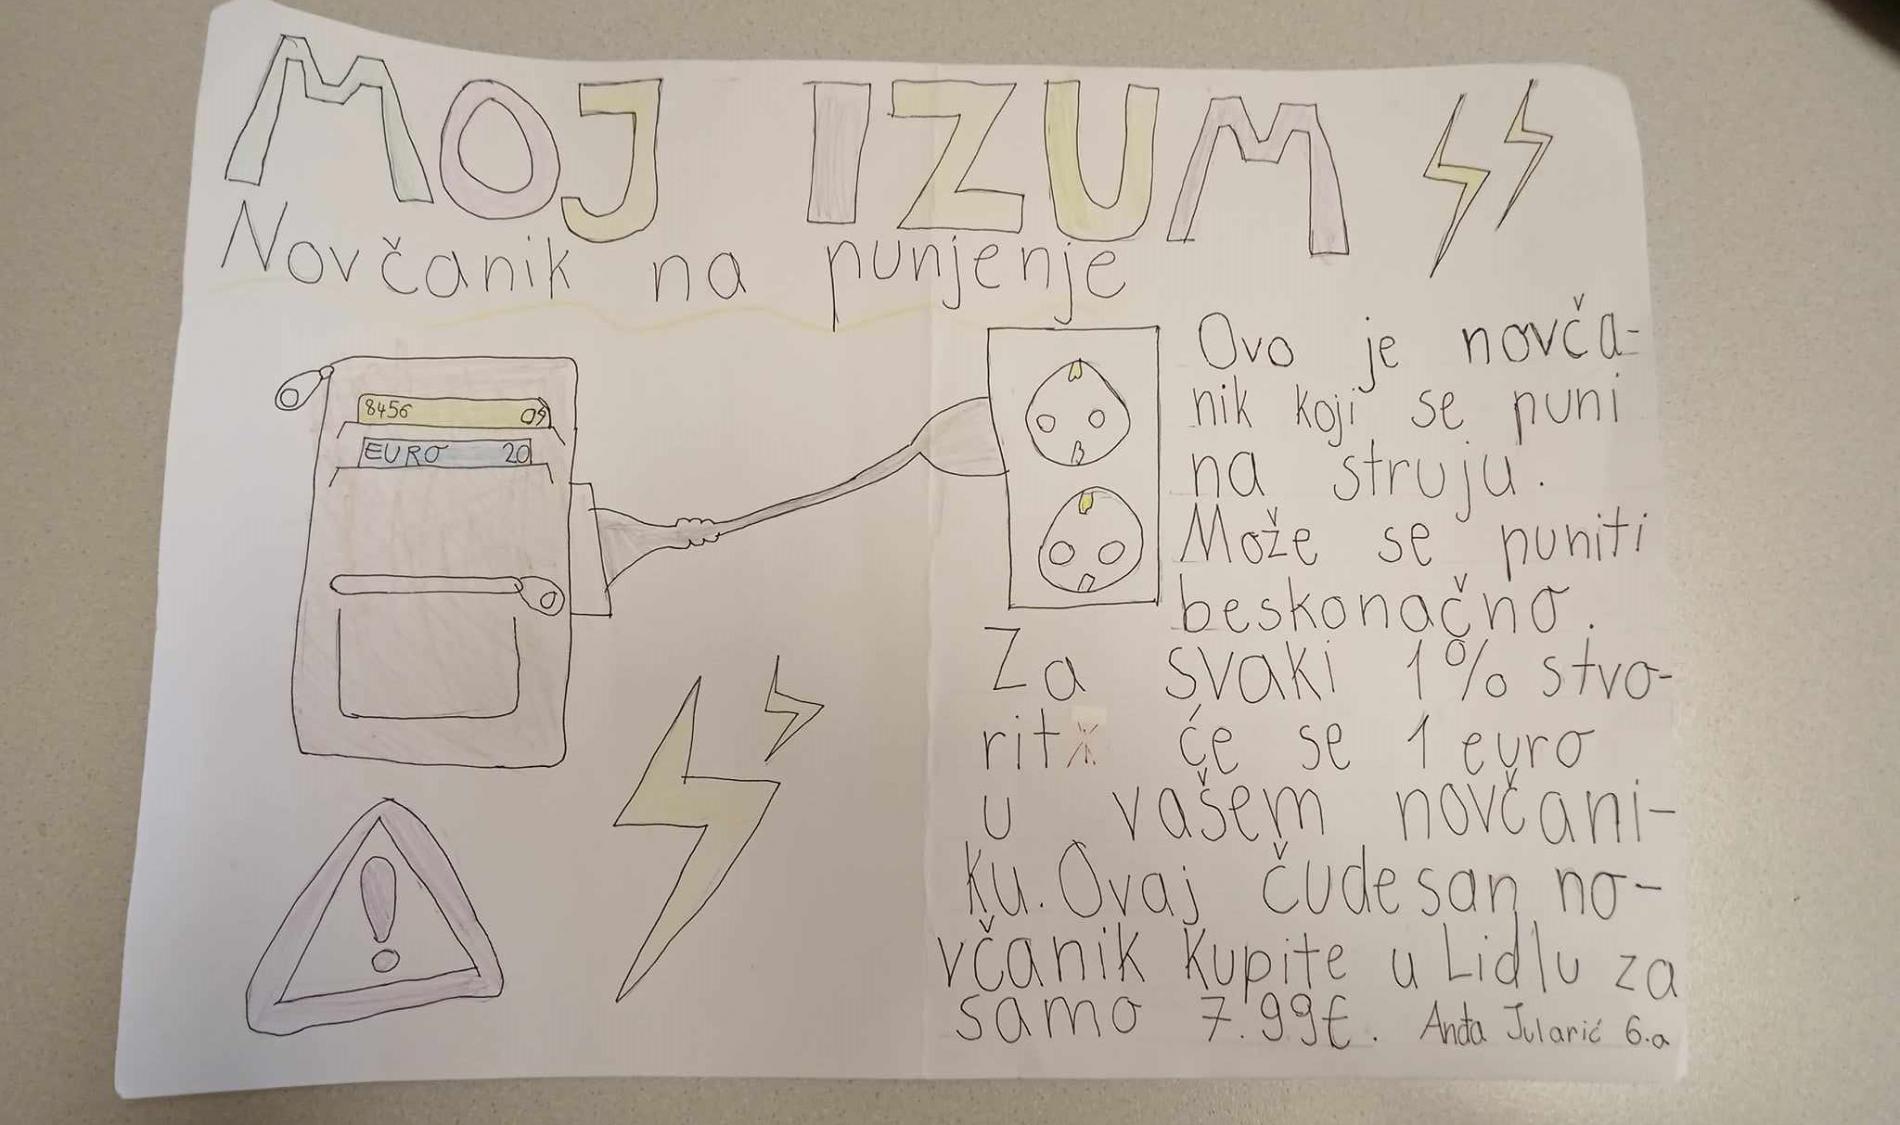 MOJ IZUM
Novčanik na punjenje
8456
EURO 20
Ovo je novča-
nik koji se puni
na struju.
Može se puniti
beskonačno.
Za svaki 1% stvo-
rit će se 1 euro
u vašem novčani-
ku. Ovaj čudesan no-
včanik kupite u Lidlu za
samo 7.99€. Anđa Jularić 6.a